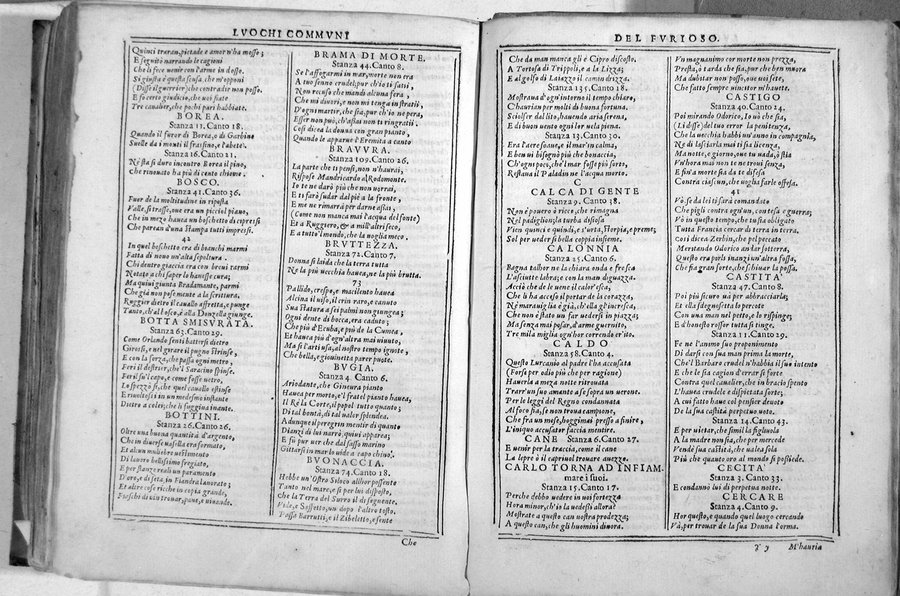 LVOCHI COMMVNI
Quinci traran, pietade e amor n'ha mosso;
E seguitò narrando le cagioni
Che li fece venir con l'arme in dosso.
Sì giusta è questa scusa, che m'opponi
(Disse il guerrier) che contradir non posso.
E fo certo giudicio, che voi siate
Tre cavalier, che pochi pari habbiate.
BOREA.
Stanza 11. Canto 18.
Quando il furor di Borea, o di Garbino
Suelle da i monti il frassino, e l'abete.
Stanza 16. Canto 21,
Nè sta sì duro incontro Borea il pino,
Che rinouato ha più di cento chiome.
BOSCO.
Stanza 41. Canto 36.
Fuor de la moltitudine in riposta
Valle, si trasse, oue era un picciol piano,
Che in mezo hauea un boschetto di cipressi
Che parean d'una stampa tutti impressi.
42
In quel boschetto era di bianchi marmi
Fatta di nouo un'alta sepoltura.
Chi dentro giaccia era con breui carmi
Notato a chi saper lo hauesse cura;
Ma quiui giunta Bradamante, parmi
Che già non pose mente a la scrittura,
Ruggier dietro il cauallo affretta, e punge
Tanto, ch'al bosco, e à la Donzella giunge.
BOTTA SMISVRATA.
Stanza 63. Canto 29.
Come Orlando sentì battersi dietro
Girossi, e nel girare il pugno strinse,
E con la forza, che passa ogni metro,
Ferì il destrier, che'l Saracino spinse.
Feril su'l capo, e come fosse uetro,
Lo spezzò sì, che quel cauallo estinse
E riuoltosi in un medesmo instante
Dietro a colei, che li fuggiua inante.
BOTTINI.
Stanza 26. Canto 26.
Oltre una buona quantità d'argento,
Che in diuerse uasella era formato,
Et alcun muliebre uestimento
Di lauoro bellissimo fregiato,
E per stanze reali un paramento
D'oro, e di seta, in Fiandra lauorato;
Et altre cose ricche in copia grande,
Fiaschi di uin trouar, pane, e uiuande.
BRAMA DI MORTE.
Stanza 44. Canto 8.
Se l'affogarmi in mar, morte non era
A tuo senno crudel; pur ch'io ti satii,
Non recuso che mandi alcuna fera,
Che mi diuori, e non mi tenga in stratii,
D'ogni martir, che sia, pur ch'io ne pera,
Esser non può, ch'assai non ti ringratii.
Così dicea la donna con gran pianto,
Quando le apparue l'Eremita a canto
BRAVVRA.
Stanza 109. Canto 26.
La parte che ti pensi, non n'haurai,
Rispose Mandricardo a Rodomonte.
Io te ne darò più che non uorrai,
E ti farò sudar dal piè a la fronte,
E me ne rimarrà per darne assai
(Come non manca mai l'acqua del fonte)
Et a Ruggiero, & a mill'altri seco,
E a tutto'l mondo, che la uoglia meco.
BRVTTEZZA.
Stanza 72. Canto 7,
Donna sì laida che la terra tutta
Nè la più uecchia hauea, ne la più brutta.
73
Pallido, crespo, e macilento hauea
Alcina il uiso, il crin raro, e canuto
Sua statura a sei palmi non giungea;
Ogni dente di bocca, era caduto;
Che più d'Ecuba, e più de la Cumea,
Et hauea più d'ogn'altra mai uiuuto,
Ma sì l'arti usa, al nostro tempo ignote,
Che bella, e giouinetta parer puote.
BVGIA.
Stanza 4. Canto 6.
Ariodante, che Gineura pianto
Hauea per morto, e'l fratel pianto hauea,
Il Rè la Corte, il popol tutto quanto;
Di tal bontà, di tal ualor splendea.
Adunque il peregrin mentir di quanto
Dianzi di lui narrò, quiui apparea;
E fu pur uer che dal sasso marino
Gittarsi in mar lo uide a capo chino.
BVONACCIA.
Stanza 74. Canto 18.
Hebbe un'Ostro Siloco allhor possente
Tanto nel mare, e sì per lui disposto,
che la Terra del Surro il dì seguente,
Vide, e Saffetto, un dopo l'altro tosto.
Passa Barrutti, e il Zibeletto, e sente
Che
DEL FVRIOSO.
Che da man manca gli è Cipro discosto.
A Tortosa di Trippoli, e a la Lizza;
E al golfo di Laiazzo il camin drizza.
Stanza 135. Canto 18.
Mostraua d'ogn'intorno il tempo chiaro,
C'haurian per molti dì buona fortuna.
Sciolser dal lito, hauendo aria serena,
E di buon uento ogni lor uela piena.
Stanza 13. Canto 30.
Era l'aere soaue, e il mar'in calma,
E ben ui bisognò più che bonaccia,
Ch'ogni poco, ché'l mar fosse più forte,
Restaua il Paladin ne l'acqua morto.
C
CALCA DI GENTE
Stanza 9. Canto 38.
Non è pouero ò ricco, che rimagna
Nel padiglion; la turba disiosa
Vien quinci e quindi, e s'urta, storpia, e preme;
Sol per ueder sì bella coppia insieme.
CALONNIA.
Stanza 25. Canto 6.
Bagna talhor ne la chiara onda e fresca
L'asciutte labra; e con la man diguazza.
Acciò che de le uene il calor'esca,
Che li ha acceso il portar de la corazza,
Nè marauiglia è già, ch'ella gl'incresca,
Che non è stato un far uedersi in piazza;
Ma senza mai posar, d'arme guernito,
Tre mila miglia ogn'hor correndo er'ito.
CALDO
Stanza 58. Canto 4.
Questo Lurcanio al padre l'ha accusata
(Forse per odio più che per ragione)
Hauerla a meza notte ritrouata
Trarr'un suo amante a se sopra un uerone.
Per le leggi del Regno condannata
Al foco fia, se non troua campione,
Che fra un mese, hoggimai presso a finire,
L'iniquo accusator faccia mentire.
CANE Stanza 6. Canto 27.
E uenir per la traccia, come il cane
La lepre ò il capriuol trouare auezze.
CARLO TORNA AD INFIAM-
mare i suoi.
Stanza 15. Canto 17.
Perche debbo uedere in uoi fortezza
Hora minor, ch'io la uedessi allora?
Mostrate a questo can nostra prodezza;
A questo can, che gli huomini diuora.
Vn magnanimo cor morte non prezza,
Presta, ò tarda che sia, pur che ben muora
Ma dubitar non posso, oue uoi sete,
Che fatto sempre uincitor m'hauete.
CASTIGO
Stanza 40. Canto 24.
Poi mirando Odorico, Io uò che sia,
(Li disse) del tuo error la penitenza,
Che la uecchia habbi un'anno in compagnia,
Ne di lasciarla mai ti sia licenza,
Ma notte, e giorno, oue tu uada, ò stia
Vn'hora mai non te ne troui senza,
E fin'a morte sia da te difesa
Contra ciascun, che uoglia farle offesa.
41
Vò se da lei ti sarà comandato
Che pigli contra ogniun, contesa e guerra;
Vò in questo tempo, che tu sia obligato
Tutta Francia cercar di terra in terra.
Così dicea Zerbin, che pel peccato
Meritando Odorico andar sotterra,
Questo era porli inanzi un'alta fossa,
Che fia gran sorte, che schiuar la possa.
CASTITÀ
Stanza 47. Canto 8.
Poi più sicuro uà per abbracciarla;
Et ella sdegnosetta lo percote
Con una man nel petto, e lo rispinge;
E d'honesto rossor tutta si tinge.
Stanza 11. Canto 29.
Fe ne l'animo suo proponimento
Di darsi con sua man prima la morte,
Che'l Barbaro crudel n'habbia il suo intento
E che le sia cagion d'errar sì forte
Contra quel caualier, che in braccio spento
L'hauea crudele e dispietata sorte;
A cui fatto haue col pensier deuoto
De la sua castità perpetuo uoto.
Stanza 14. Canto 43.
E per uietar, che simil la figliuola
A la madre non sia, che per mercede
Vendè sua castità, che ualea sola
Più che quanto oro al mondo si possiede.
CECITÀ'
Stanza 3. Canto 33.
E condannò lui di perpetua notte.
CERCARE
Stanza 4. Canto 9.
Hor questo, e quando quel luogo cercando
Và, per trouar de la sua Donna l'orma.
Y 3 M'hauria